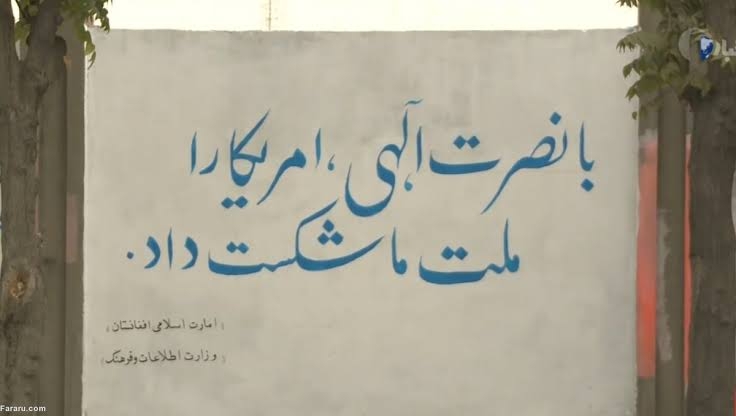 با نصرت الٰهی، امریکا را
ملت ما شکست داد.
(امارت اسلامی افغانستان)
(وزارت اطلاعات و فرهنگ)
Fararu.com